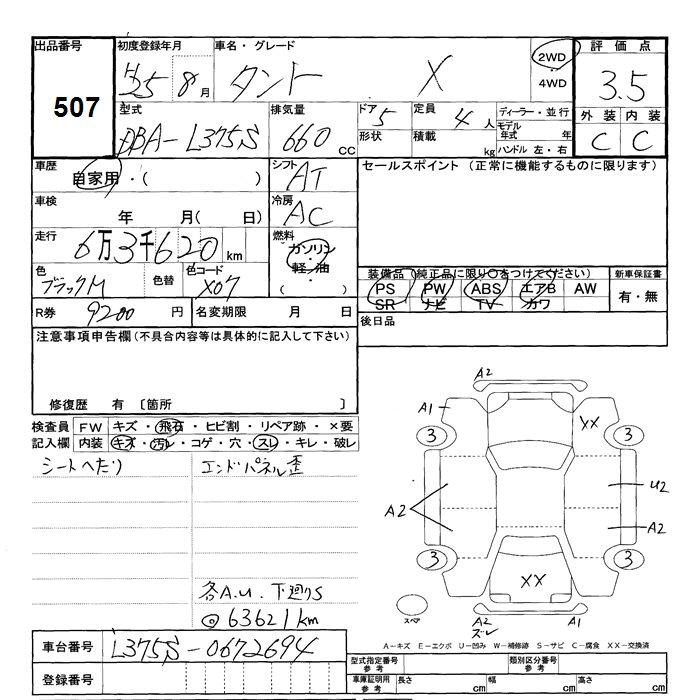 出品番号
507
初度登録年月
H25 8月
車名・グレード
タント X
2WD
4WD
評価点
3.5
外装 内装
C C
型式
DBA-L375S
排気量
660 CC
ドア 5
形状
定員 4 人
積載 kg
ディーラー・並行
モデル年式 年
ハンドル 左・右
車歴
自家用・( )
シフト
AT
セールスポイント (正常に機能するものに限ります)
車検
年 月( 日)
冷房
AC
走行
6万3千620 km
燃料
ガソリン
・
軽・油
( )
色
ブラックM
色替
色コード
X07
装備品(純正品に限り○をつけてください)
新車保証書
PS PW ABS エアB AW
SR ナビ TV カワ
有・無
R券 9200 円
名変期限 月 日
後日品
注意事項申告欄(不具合内容等は具体的に記入して下さい)
修復歴 有 〔箇所 〕
検査員
記入欄
FW キズ・飛石・ヒビ割・リペア跡・×要
内装 キズ・汚レ・コゲ・穴・スレ・キレ・破レ
シートへたり
エンドパネル歪
各A.U.下廻りS
◎63621km
A2
A1
XX
3
3
A2
U2
A2
3
3
XX
スペア
A2
ズレ
A1
A-キズ E-エクボ U-凹み W-補修跡 S-サビ C-腐食 XX-交換済
車台番号
L375S-0672694
登録番号
型式指定番号
参考
類別区分番号
参考
車庫証明用
参考
長さ cm
幅 cm
高さ cm